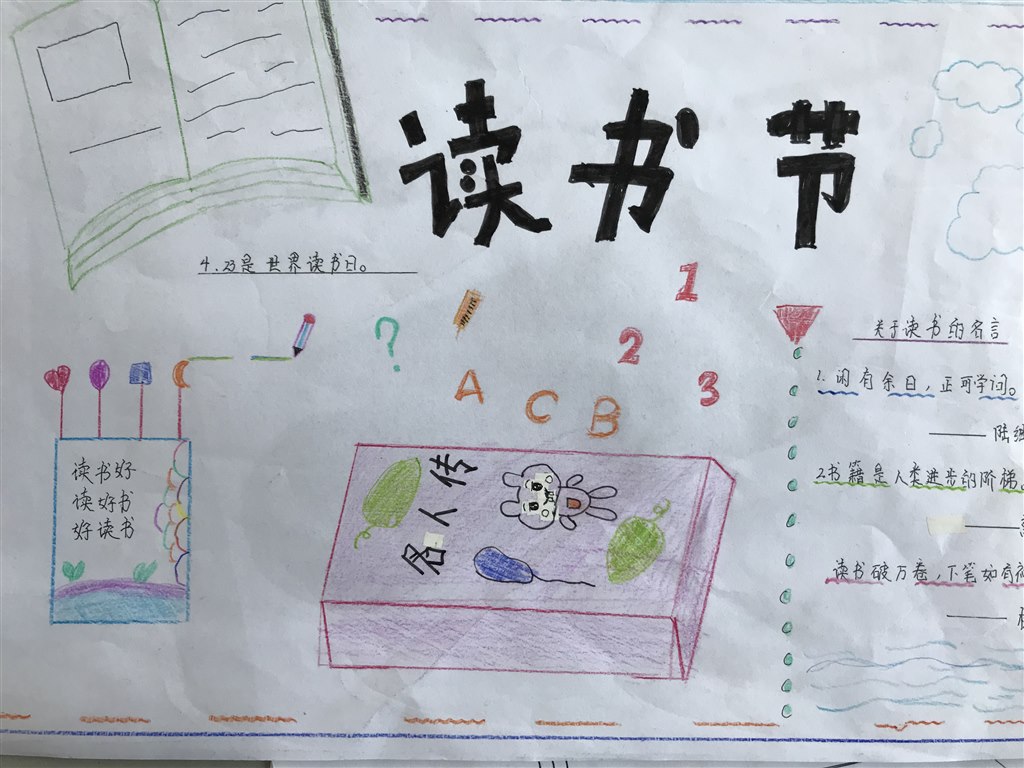 读书节
4.23是世界读书日。
?
1
2
3
A C B
读书好
读好书
好读书
名人传
关于读书的名言
1.闲有余日,正可学问。
——陆
2.书籍是人类进步的阶梯。
读书破万卷,下笔如有